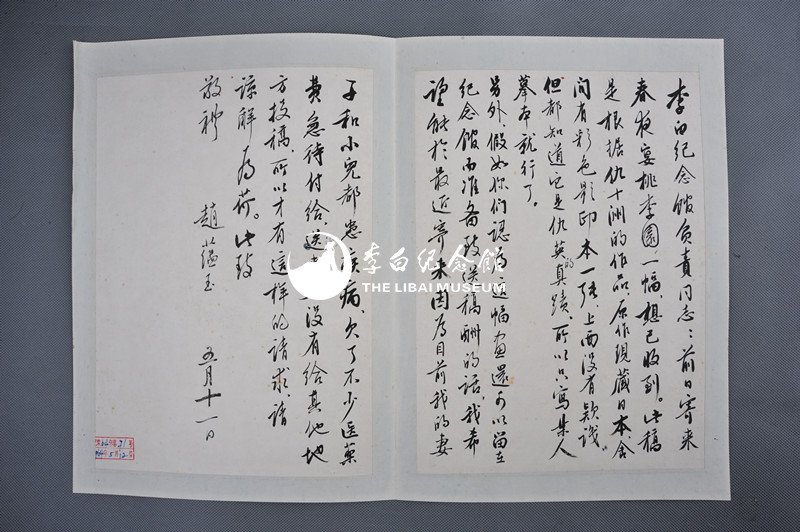 李白纪念馆负责同志：前日寄来
春夜宴桃李園一幅，想已收到。此稿
是根据仇十洲的作品原作現藏日本舍
间有彩色影印本一张，上面没有款識，
但都知道它是仇英的真蹟，所以只寫某人
摹本就行了。
另外假如你们認为这幅畫還可以留在
纪念馆而准备致送稿酬的话，我希
望能於最近寄来因为目前我的妻
子和小兒都患疾病，欠了不少医藥
費急待付给，没有给其他地
方投稿，所以才有这样的请求，请
諒解为荷。此致
敬礼
趙蕴玉
五月十一日
李白纪念館
THE LIBAI MUSEUM